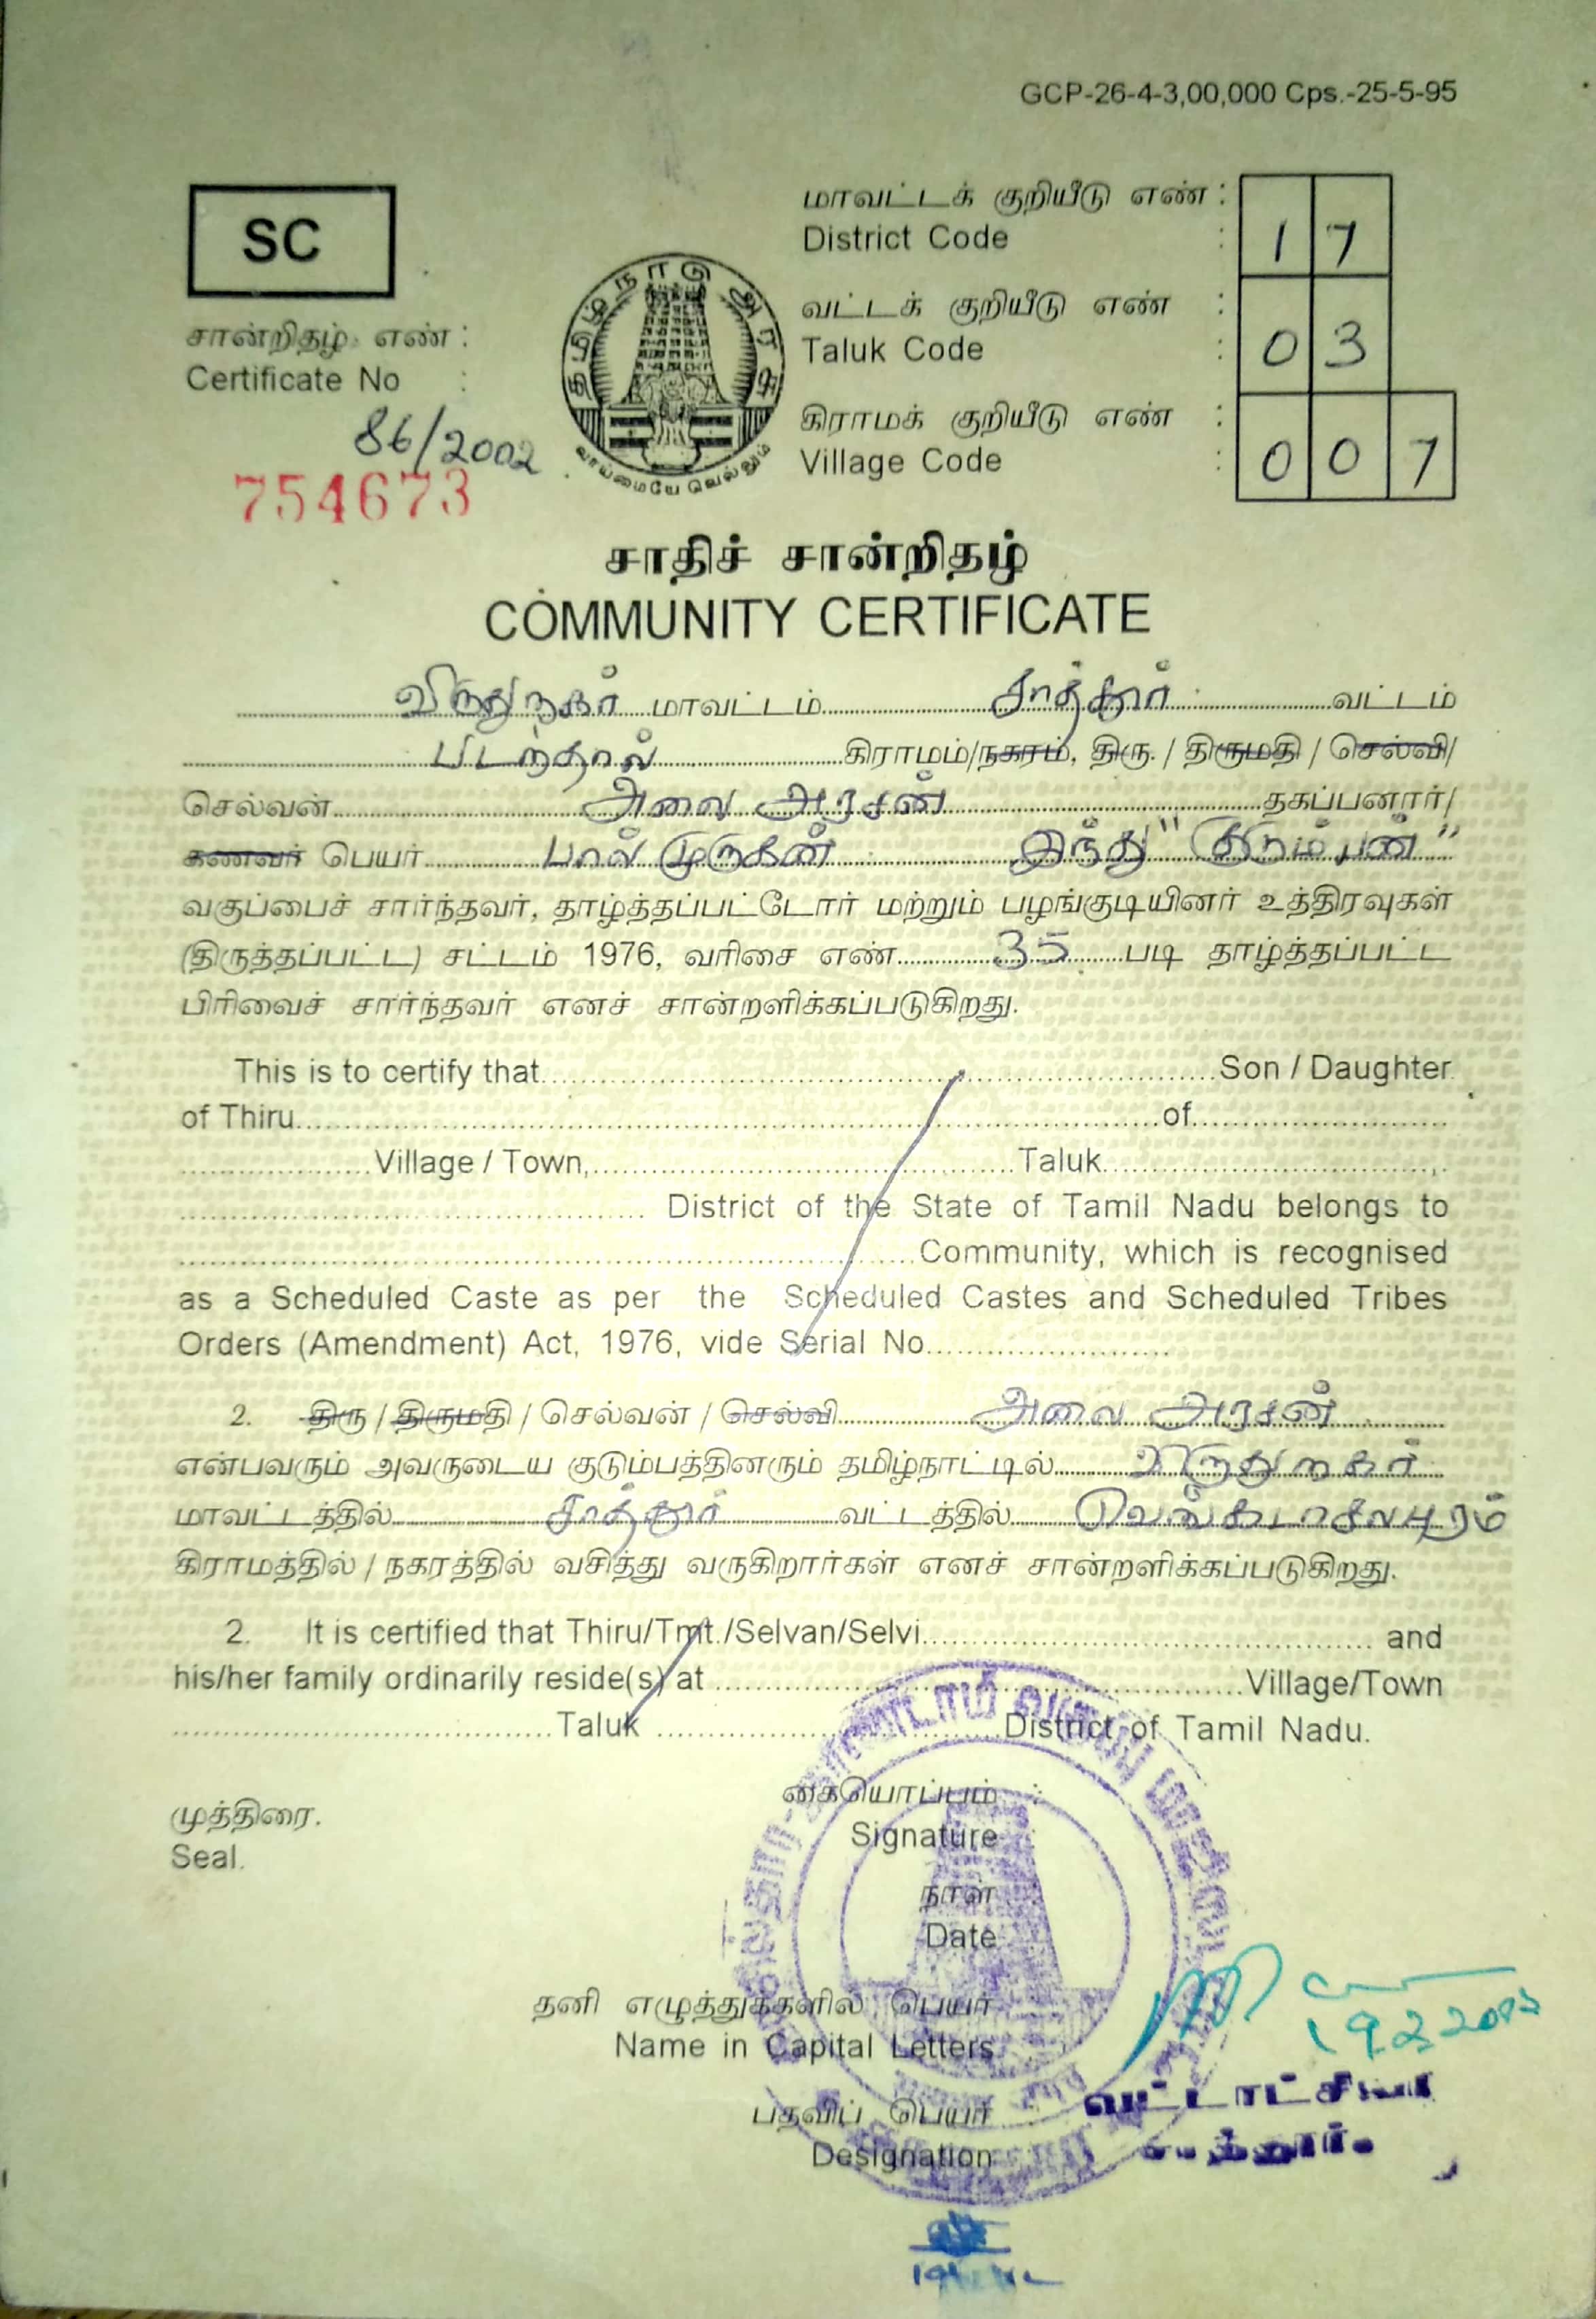 GCP-26-4-3,00,000 Cps.-25-5-95
SC
மாவட்டக் குறியீடு எண் :
District Code : 1 7
வட்டக் குறியீடு எண் :
Taluk Code : 0 3
கிராமக் குறியீடு எண் :
Village Code : 0 0 7
சான்றிதழ் எண் :
Certificate No :
86/2002
754673
தமிழ்நாடு அரசு
வாய்மையே வெல்லும்
சாதிச் சான்றிதழ்
COMMUNITY CERTIFICATE
விருதுநகர் மாவட்டம் சாத்தூர் வட்டம்
படந்தால் கிராமம்/நகரம், திரு. / திருமதி / செல்வி/
செல்வன் அலை அரசன் தகப்பனார்/
கணவர் பெயர் பால் முருகன் இந்து "குடும்பன்"
வகுப்பைச் சார்ந்தவர், தாழ்த்தப்பட்டோர் மற்றும் பழங்குடியினர் உத்திரவுகள்
(திருத்தப்பட்ட) சட்டம் 1976, வரிசை எண் 35 படி தாழ்த்தப்பட்ட
பிரிவைச் சார்ந்தவர் எனச் சான்றளிக்கப்படுகிறது.
This is to certify that Son / Daughter
of Thiru of
Village / Town, Taluk
District of the State of Tamil Nadu belongs to
Community, which is recognised
as a Scheduled Caste as per the Scheduled Castes and Scheduled Tribes
Orders (Amendment) Act, 1976, vide Serial No.
2. திரு / திருமதி / செல்வன் / செல்வி அலை அரசன்
என்பவரும் அவருடைய குடும்பத்தினரும் தமிழ்நாட்டில் விருதுநகர்
மாவட்டத்தில் சாத்தூர் வட்டத்தில் வெங்கடாசலபுரம்
கிராமத்தில் / நகரத்தில் வசித்து வருகிறார்கள் எனச் சான்றளிக்கப்படுகிறது.
2. It is certified that Thiru/Tmt./Selvan/Selvi and
his/her family ordinarily reside(s) at Village/Town
Taluk District of Tamil Nadu.
கையொப்பம் :
Signature
முத்திரை.
Seal.
நாள்
Date
தனி எழுத்துக்களில் பெயர்
Name in Capital Letters
19.2.2002
பதவிப் பெயர்
Designation
வட்டாட்சியர்
சாத்தூர்.